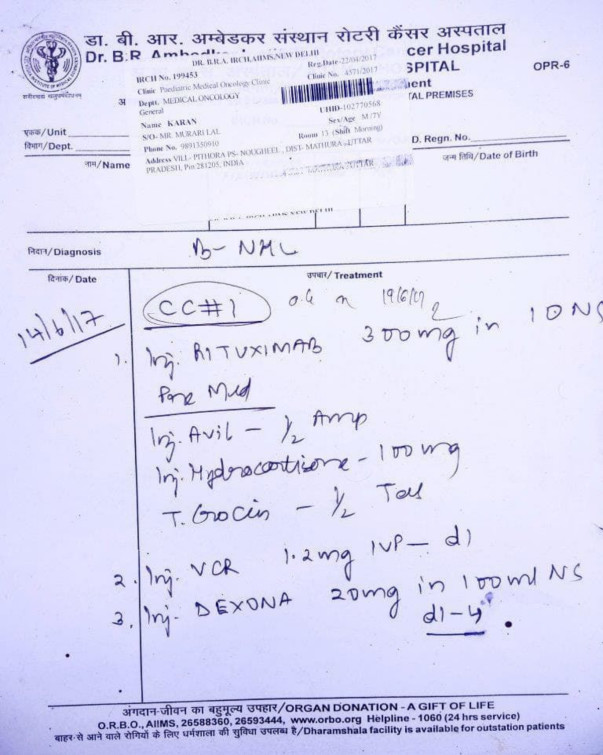 डा. बी. आर. अम्बेडकर संस्थान रोटरी कैंसर अस्पताल
Dr. B.R cer Hospital
SPITAL
OPR-6
TAL PREMISES
DR. B.R.A. IRCH, AIIMS, NEW DELHI
IRCH No. 199453
Reg.Date-22/04/2017
Clinic Paediatric Medical Oncology Clinic
Clinic No. 4571/2017
Deptt. MEDICAL ONCOLOGY
General
UHID-102770568
Name KARAN
Sex/Age M/7Y
S/O- MR. MURARI LAL
Room 13 (Shift Morning)
Phone No. 9891350910
Address VILL- PITHORA PS- NOUGHEEL , DIST- MATHURA , UTTAR
PRADESH, Pin:281205, INDIA
एकक/Unit
विभाग/Dept.
D. Regn. No.
नाम/Name
जन्म तिथि/Date of Birth
निदान/Diagnosis
B- NHL
दिनांक/Date
उपचार/Treatment
14/6/17
CC#1
19/6/17
1. Inj. RITUXIMAB 300mg in NS
Pre Med
Inj. Avil - 1/2 Amp
Inj. Hydrocortisone - 100 mg
T. Crocin - 1/2 Tab
2. Inj. VCR 1.2mg IVP - d1
3. Inj. DEXONA 20mg in 100ml NS
d1-4
अंगदान-जीवन का बहुमूल्य उपहार/ORGAN DONATION - A GIFT OF LIFE
O.R.B.O., AIIMS, 26588360, 26593444, www.orbo.org Helpline - 1060 (24 hrs service)
बाहर से आने वाले रोगियों के लिए धर्मशाला की सुविधा उपलब्ध है/Dharamshala facility is available for outstation patients